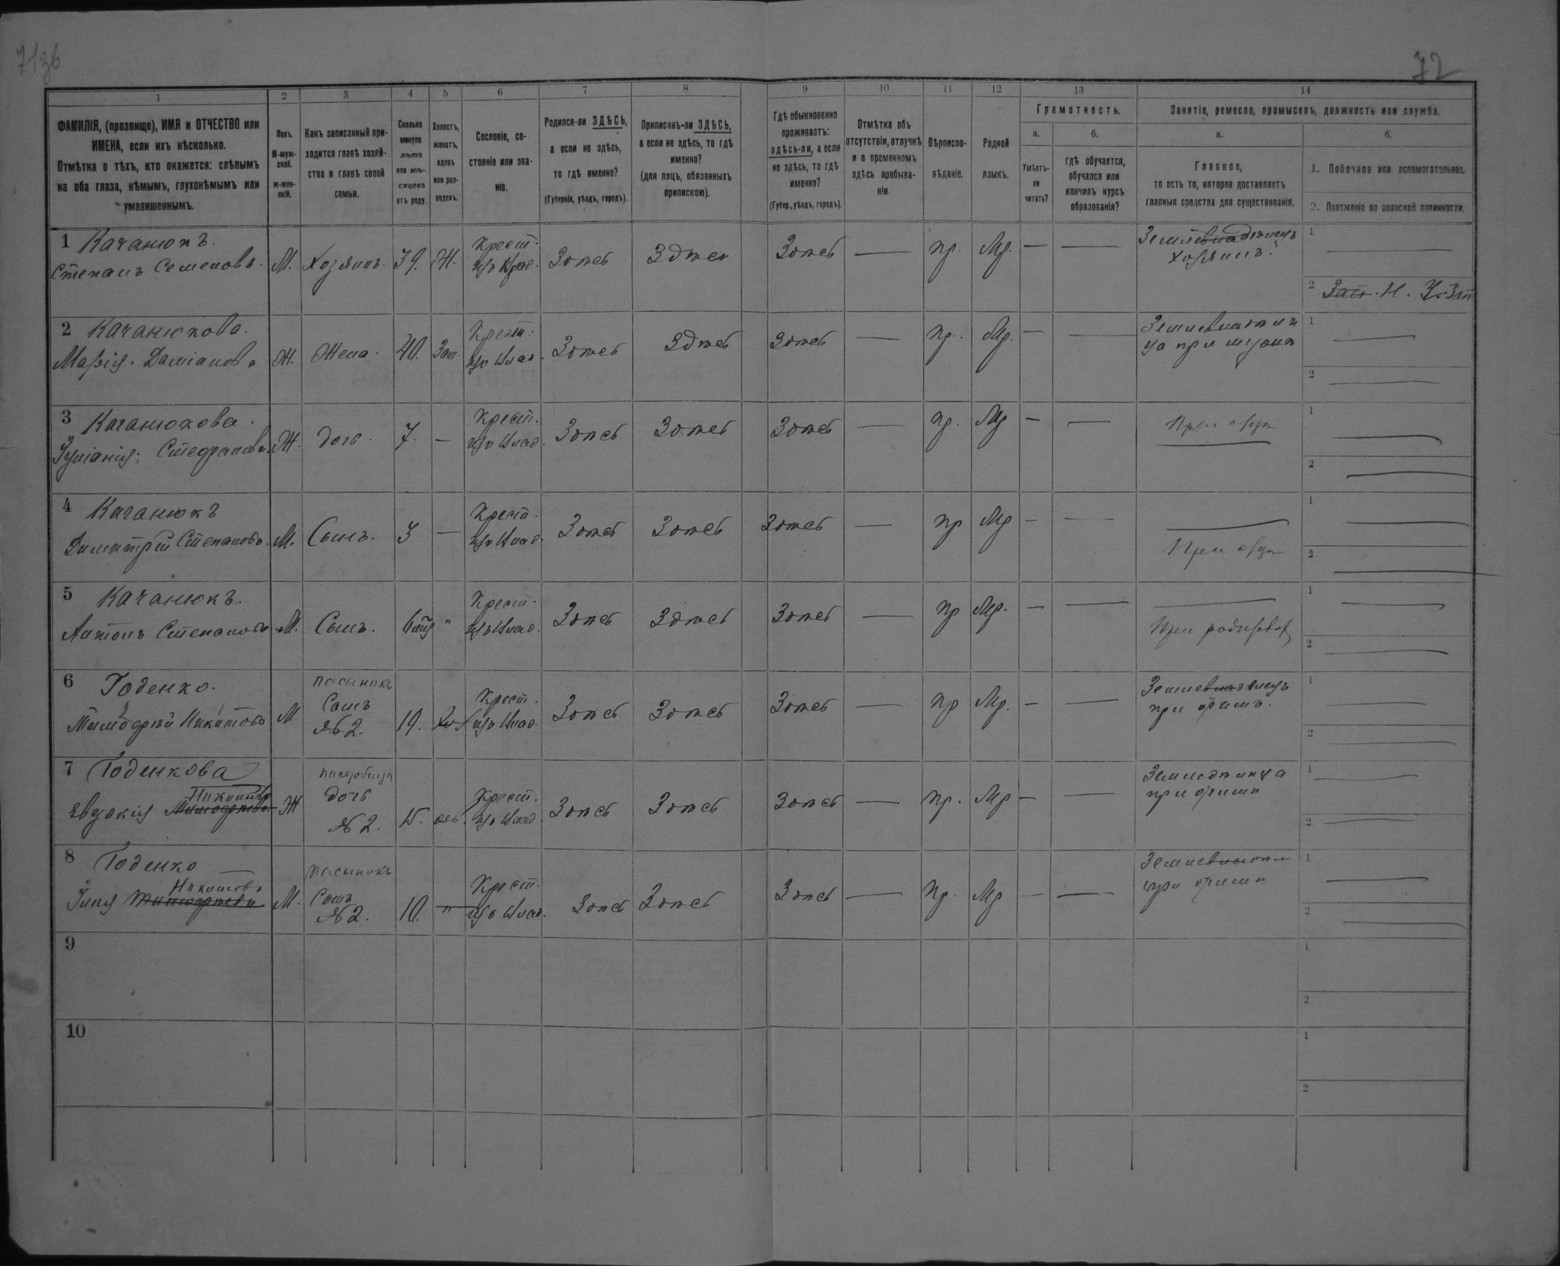 7136
72
1
2
3
4
5
6
7
8
9
10
11
12
13
14
ФАМИЛІЯ, (прозвище), ИМЯ и ОТЧЕСТВО или
ИМЕНА, если ихъ нѣсколько.
Отмѣтка о тѣхъ, кто окажется: слѣпымъ
на оба глаза, нѣмымъ, глухонѣмымъ или
умалишеннымъ.
Полъ.
М-муж-
ской.
ж-жен-
скій.
Какъ записанный при-
ходится главѣ хозяй-
ства и главѣ своей
семьи.
Сколько
минуло
лѣтъ
или мѣ-
сяцевъ
отъ роду.
Холостъ,
женатъ,
вдовъ
или раз-
веденъ.
Сословіе, со-
стояніе или зва-
ніе.
Родился-ли ЗДѢСЬ,
а если не здѣсь,
то гдѣ именно?
(Губернія, уѣздъ, городъ).
Приписанъ-ли ЗДѢСЬ,
а если не здѣсь, то гдѣ
именно?
(для лицъ, обязанныхъ
припискою).
Гдѣ обыкновенно
проживаетъ:
здѣсь-ли, а если
не здѣсь, то гдѣ
именно?
(Губер., уѣздъ, городъ).
Отмѣтка объ
отсутствіи, отлучкѣ
и о временномъ
здѣсь пребыва-
ніи.
Вѣроиспо-
вѣданіе.
Родной
языкъ.
Грамотность.
а.
б.
Умѣетъ-
ли
читать?
гдѣ обучается,
обучался или
кончилъ курсъ
образованія?
Занятіе, ремесло, промыселъ, должность или служба.
а.
б.
Главное,
то есть то, которое доставляетъ
главныя средства для существованія.
1. Побочное или вспомогательное.
2. Положеніе по воинской повинности.
1 Качанюкъ.
Степанъ Семеновъ. М. Хозяинъ. 39. Ж. Крест. Здѣсь Здѣсь Здѣсь — Пр. Мр. — — Хозяинъ. 1 —
2
2 Качанюкова.
Марія Даміанова Ж. Жена. 40. Зам. Крест. Здѣсь Здѣсь Здѣсь Пр. Мр. — — при мужѣ 1 —
2 —
3 Качанюкова.
Ж. дочь. 7. — Крест. Здѣсь Здѣсь Здѣсь — Пр. Мр — — При отцѣ 1 —
2 —
4 Качанюкъ
Димитрій Степановъ. М. Сынъ. 3 — Крест. Здѣсь Здѣсь Здѣсь — Пр Мр — — При отцѣ 1 —
2 —
5 Качанюкъ.
Антонъ Степановъ М. Сынъ. " Крест. Здѣсь Здѣсь Здѣсь — Пр Мр. — — 1 —
2 —
6 Годенко.
Тимофей Никитовъ М пасынокъ
Сынъ
№ 2. 19. Крест. Здѣсь Здѣсь Здѣсь — Пр Мр. — — 1 —
2 —
7 Годенкова
Евдокія Никитова Ж падчерица
дочь
№ 2. 15. Крест. Здѣсь Здѣсь Здѣсь — Пр. Мр — — 1 —
2 —
8 Годенко
Никитовъ М. пасынокъ
Сынъ
№ 2. 10. " Крест. Здѣсь Здѣсь Здѣсь — Пр. Мр — — 1 —
2 —
9
1
2
10
1
2